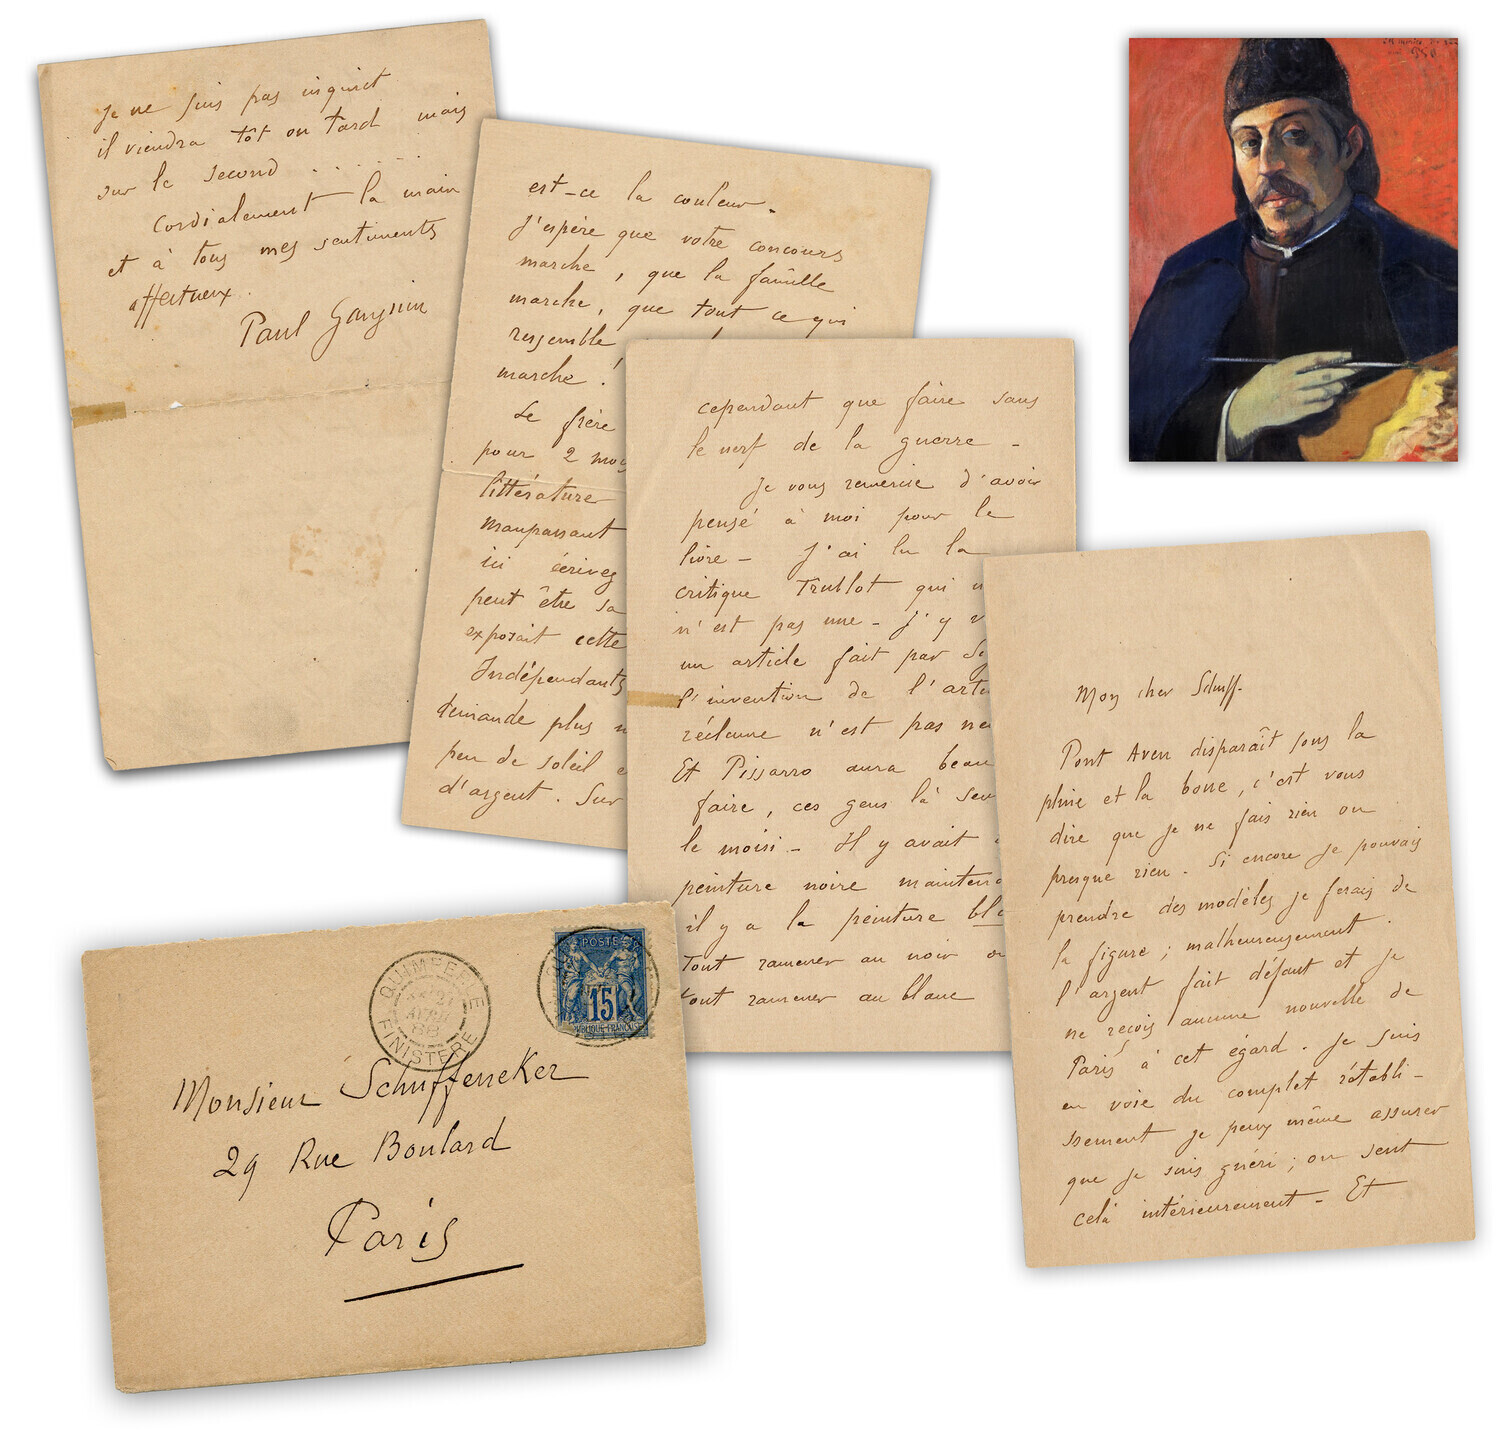 Mon cher Schuff.
Pont Aven disparaît sous la
pluie et la boue, c'est vous
dire que je ne fais rien ou
presque rien. Si encore je pouvais
prendre des modèles je ferais de
la figure; malheureusement
l'argent fait défaut et je
ne reçois aucune nouvelle de
Paris à cet égard. Je suis
en voie du complet rétabli-
ssement je peux même assurer
que je suis guéri; on sent
celà intérieurement - Et
cependant que faire sans
le nerf de la guerre -
Je vous remercie d'avoir
pensé à moi pour le
livre - J'ai lu la
critique Trublot qui
n'est pas une - J'y
un article fait par
l'invention de
réclame n'est pas
Et Pissarro aura
faire, ces gens là
le moisi - Il y avait
peinture noire
il y a la peinture
Tout ramener au noir
tout ramener au blanc
est-ce la couleur.
J'espère que votre concours
marche, que la famille
marche, que tout ce qui
ressemble
marche!
Le frère
pour 2
littérature
maupassant
ici écrivez
peut être
exposait cette
Indépendants
demande plus
peu de soleil
d'argent. Sur
Je ne suis pas inquiet
il viendra tôt ou tard mais
sur le second . . . . . .
Cordialement la main
et à tous mes sentiments
affectueux.
Paul Gauguin
QUIMPERLÉ
21
AVRIL
88
FINISTERE
POSTES
15
REPUBLIQUE FRANÇAISE
Monsieur Schuffeneker
29 Rue Boulard
Paris